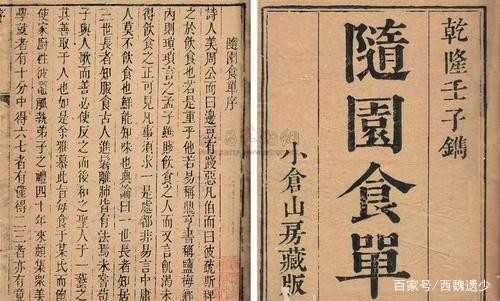 乾隆壬子鐫
隨園食單
小倉山房藏版
隨園食單序
詩人美周公而曰籩豆有踐惡凡伯而曰彼疏斯
之於飲食也若是重乎他若易稱鼎亨書稱鹽梅鄉
內則瑣瑣言之孟子雖賤飲食之人而又言飢渴未
得飲食之正可見凡事須求一是處都非易言中庸
人莫不飲食也鮮能知味也典論曰一世長者知居
三世長者知服食古人進鬐離肺皆有法焉未嘗苟
子與人歌而善必使反之而後和之聖人于一藝之
其善取于人也如是余雅慕此旨每食于某氏而飽
使家廚往彼竈觚執弟子之禮四十年來頗集眾美
學就者有十分中得六七者有僅得二三者亦有竟
序
百家号/西魏遗少